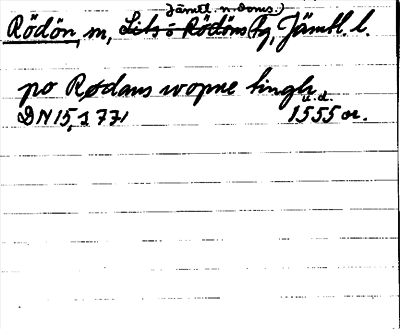 Jämtl. n. doms.)
Rödön, m, Lits o Rödöns tg, Jämtl. l.
po Rødans wopne tingh
u.d.
DN 15, s 771 1555 or.